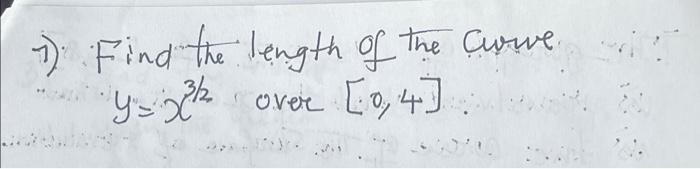 7) Find the length of the curve
y = x^{3/2} over [0, 4].